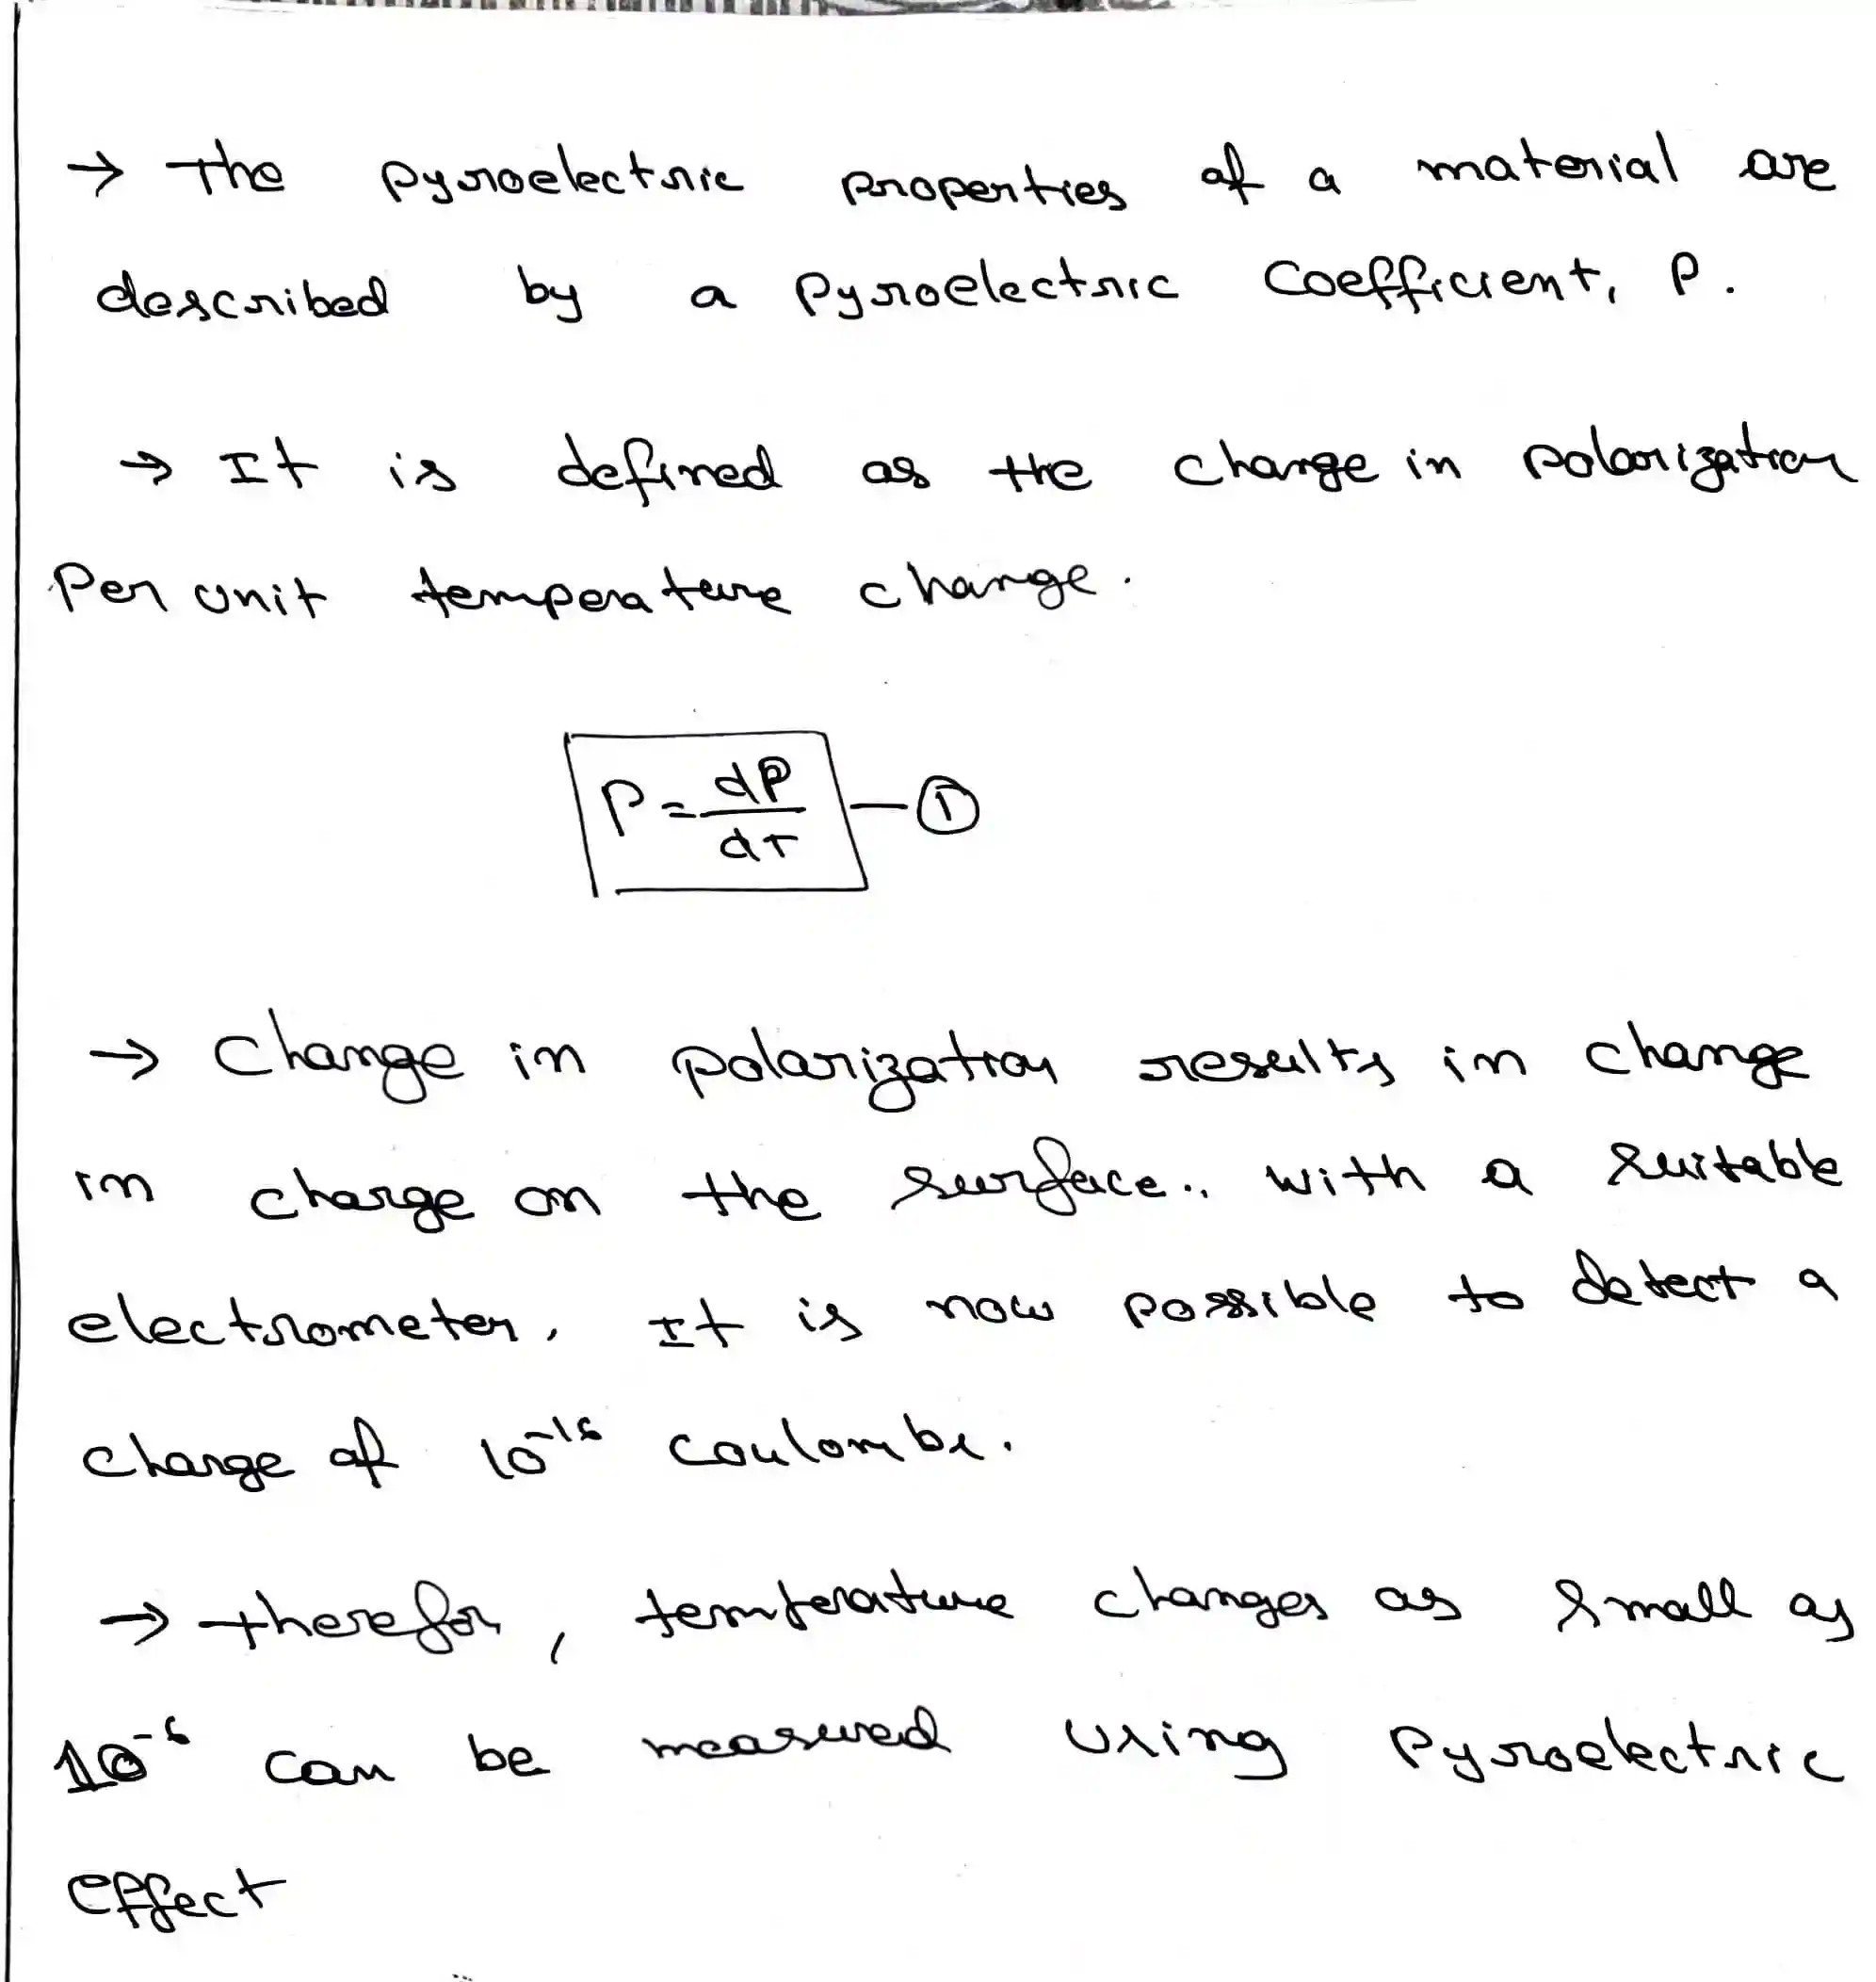 → The pyroelectric properties of a material are
described by a pyroelectric Coefficient, P.
→ It is defined as the change in polarization
Per unit temperature change.
P = dP/dT — ①
→ Change in polarization results in change
in charge on the surface.. with a suitable
electrometer, It is now possible to detect a
charge of 10⁻¹⁶ coulombs.
→ therefor, temperature changes as small as
10⁻⁶ can be measured using Pyroelectric
effect